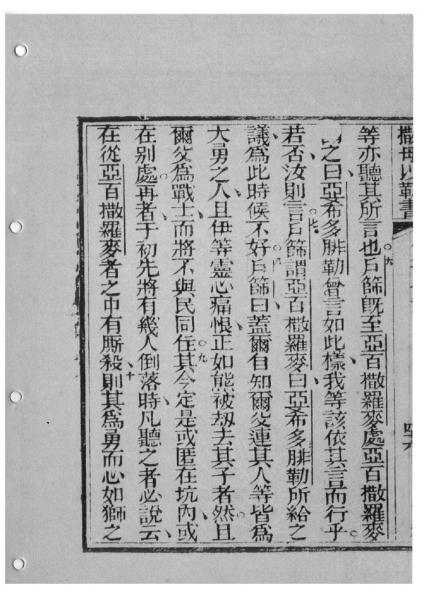 撒母以勒書
等亦聽其所言也六戶篩既至亞百撒羅麥處亞百撒羅麥
之曰亞希多腓勒曾言如此樣我等該依其言而行乎
若否汝則言七戶篩謂亞百撒羅麥曰亞希多腓勒所給之
議爲此時候不好八戶篩曰蓋爾自知爾父連其人等皆爲
大勇之人且伊等靈心痛恨正如熊被刼去其子者然且
爾父爲戰士而將不與民同住九其今定是或匿在坑內或
在別處再者于初先將有幾人倒落時凡聽之者必說云
在從亞百撒羅麥者之中有厮殺十則其爲勇而心如獅之